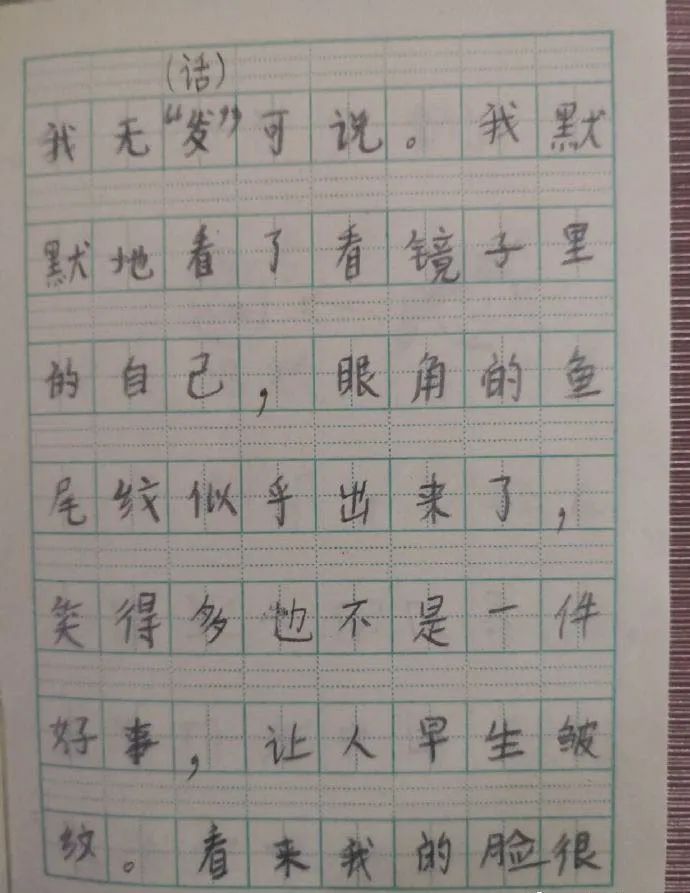 （话）
我无“发”可说。我默
默地看了看镜子里
的自己，眼角的鱼
尾纹似乎出来了，
笑得多也不是一件
好事，让人早生皱
纹。看来我的脸很